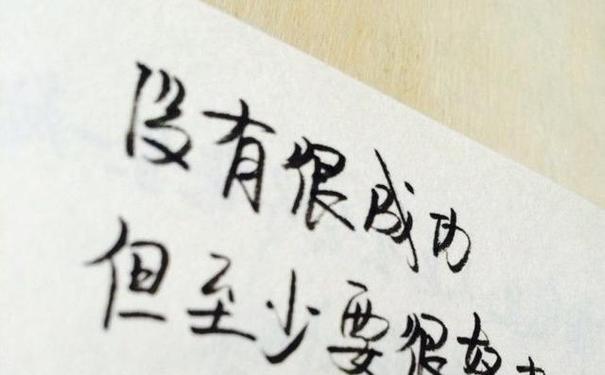 没有很成功
但至少要很